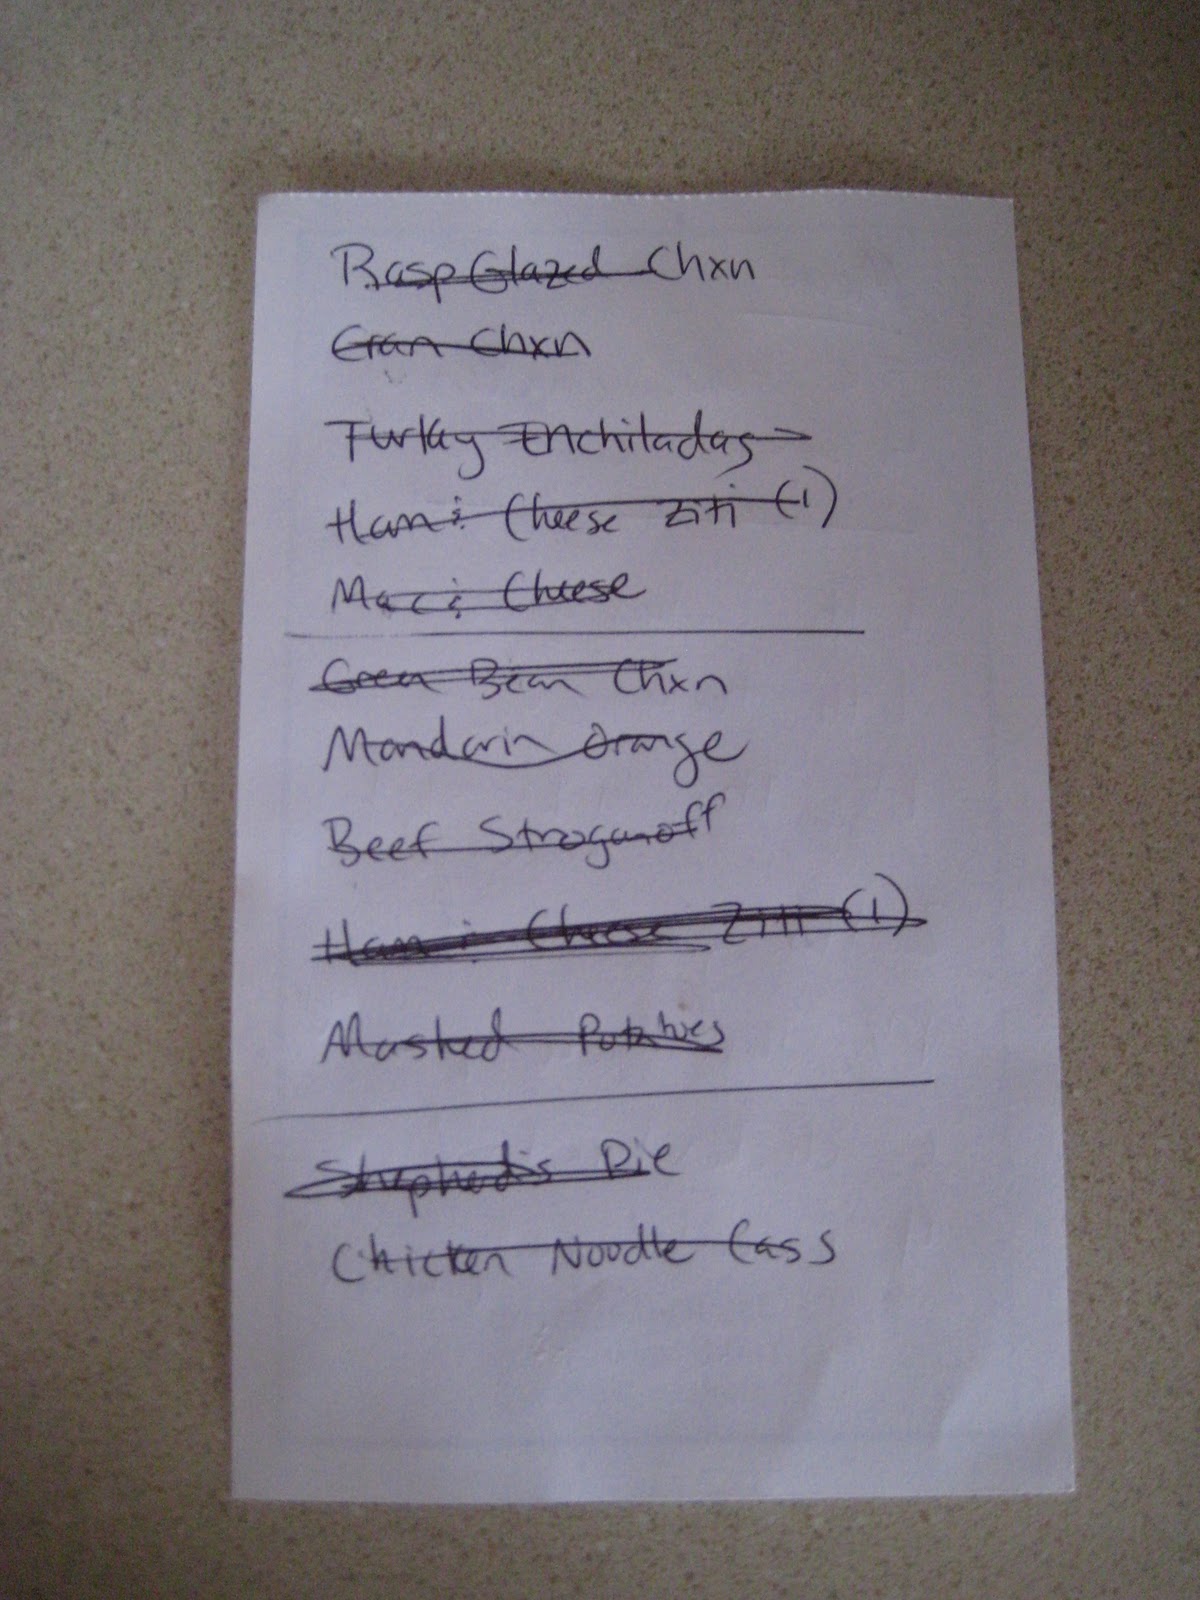 Rasp Glazed Chxn
Cran Chxn
Turkey Enchiladas
Ham & Cheese Ziti (1)
Mac & Cheese
Green Bean Chxn
Mandarin Orange
Beef Stroganoff
Ham & Cheese Ziti (1)
Mashed Potatoes
Shepherd's Pie
Chicken Noodle Cass